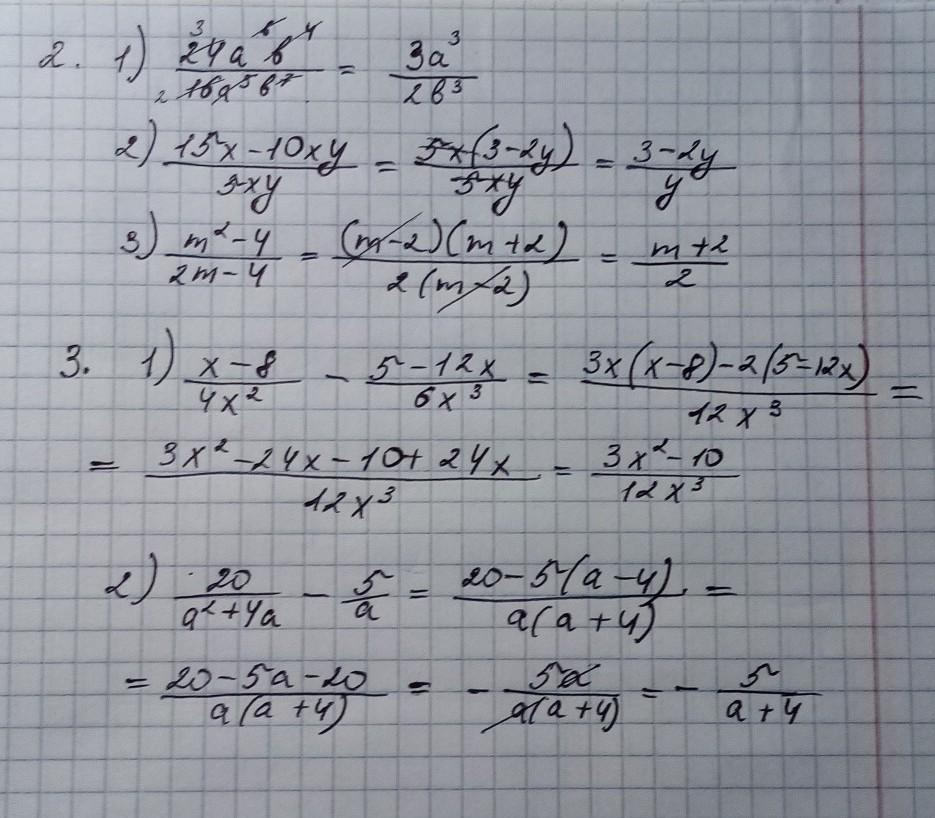 2. 1) 24a⁶b⁴/16a⁵b⁷ = 3a³/2b³
2) 15x-10xy/5xy = 5x(3-2y)/5xy = 3-2y/y
3) m²-4/2m-4 = (m-2)(m+2)/2(m-2) = m+2/2
3. 1) x-8/4x² - 5-12x/6x³ = 3x(x-8)-2(5-12x)/12x³ =
= 3x²-24x-10+24x/12x³ = 3x²-10/12x³
2) 20/a²+4a - 5/a = 20-5(a-4)/a(a+4) =
= 20-5a-20/a(a+4) = - 5a/a(a+4) = - 5/a+4